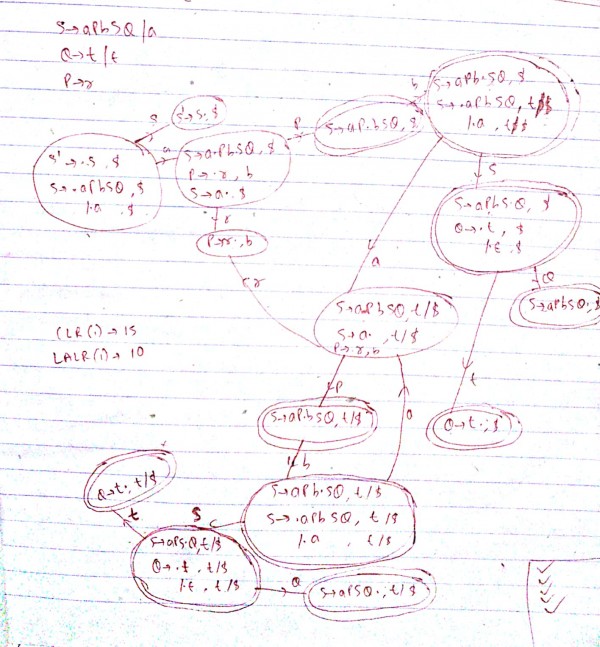 S→aPbSQ/a
Q→t/ε
P→r
S
S'→S·,$
S'→·S, $
S→·aPbSQ, $
/·a , $
a
S→a·PbSQ, $
P→·r, b
S→a·, $
P
S→aP·bSQ, $
b
S→aPb·SQ, $
S→·aPbSQ, t/$
/·a , t/$
S
S→aPbS·Q, $
Q→·t, $
/·ε, $
Q
S→aPbSQ·,$
t
Q→t·,$
r
P→r·, b
r
a
S→a·PbSQ, t/$
S→a·, t/$
P→·r, b
CLR(1)→15
LALR(1)→10
P
S→aP·bSQ, t/$
b
a
S→aPb·SQ, t/$
S→·aPbSQ, t/$
/·a , t/$
S
Q→t·, t/$
t
S→aPS·Q, t/$
Q→·t, t/$
/·ε, t/$
Q
S→aPSQ·, t/$